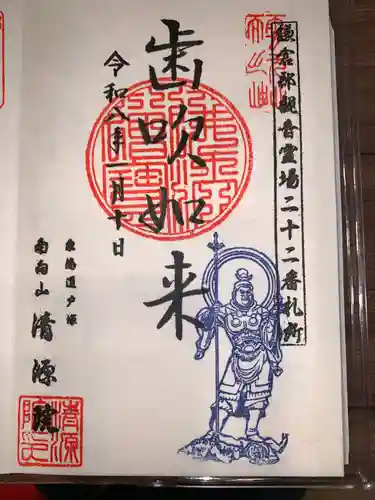 鎌倉郡観音霊場二十二番札所
歯吹如来
令和八年一月十日
東海道戸塚
南向山
清源院
清源院印